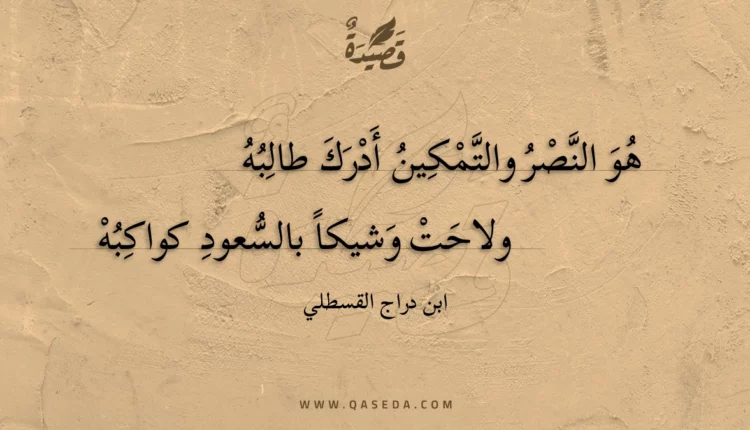 قَصِيْدَةٌ
هُوَ النَّصْرُ والتَّمْكِينُ أَدْرَكَ طالِبُهُ
ولاحَتْ وَشيكاً بالسُّعودِ كواكِبُهْ
ابن دراج القسطلي
WWW.QASEDA.COM